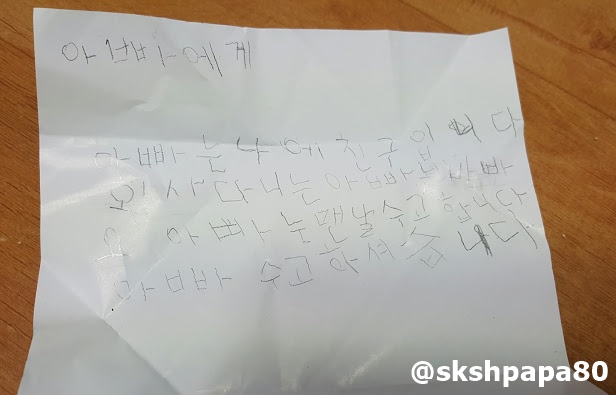 아빠에게
아빠는 나에 친구입니다
회사 다니는 아빠 바빠
요 아빠는 맨날 수고합니다
아빠 수고하셔습니다
@skshpapa80